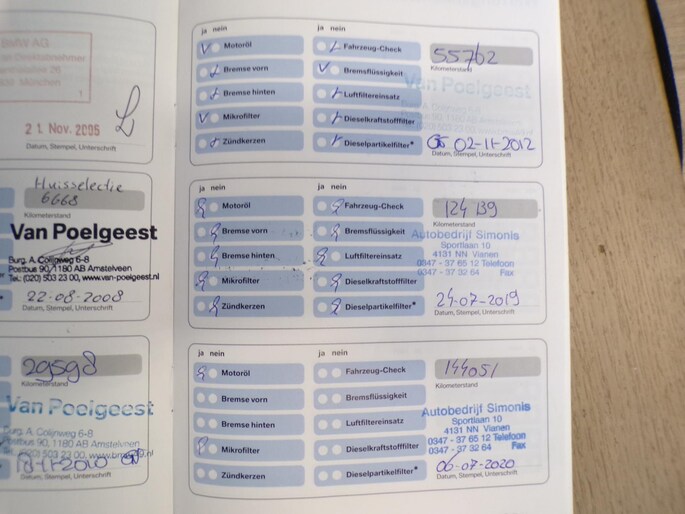 BMW AG
21. Nov. 2005
Datum, Stempel, Unterschrift
Huisselectie
6668
Kilometerstand
Van Poelgeest
Burg. A. Colijnweg 6-8
Postbus 90, 1180 AB Amstelveen
Tel.: (020) 503 23 00, www.van-poelgeest.nl
22-08-2008
Datum, Stempel, Unterschrift
29598
Kilometerstand
Van Poelgeest
Burg. A. Colijnweg 6-8
Postbus 90, 1180 AB Amstelveen
Datum, Stempel, Unterschrift
ja nein
Motoröl
Bremse vorn
Bremse hinten
Mikrofilter
Zündkerzen
ja nein
Fahrzeug-Check
Bremsflüssigkeit
Luftfiltereinsatz
Dieselkraftstofffilter
Dieselpartikelfilter*
55762
Kilometerstand
Van Poelgeest
02-11-2012
Datum, Stempel, Unterschrift
ja nein
Motoröl
Bremse vorn
Bremse hinten
Mikrofilter
Zündkerzen
ja nein
Fahrzeug-Check
Bremsflüssigkeit
Luftfiltereinsatz
Dieselkraftstofffilter
Dieselpartikelfilter*
124139
Kilometerstand
Autobedrijf Simonis
Sportlaan 10
4131 NN Vianen
0347 - 37 65 12 Telefoon
0347 - 37 32 64 Fax
24-07-2019
Datum, Stempel, Unterschrift
ja nein
Motoröl
Bremse vorn
Bremse hinten
Mikrofilter
Zündkerzen
ja nein
Fahrzeug-Check
Bremsflüssigkeit
Luftfiltereinsatz
Dieselkraftstofffilter
Dieselpartikelfilter*
144051
Kilometerstand
Autobedrijf Simonis
Sportlaan 10
4131 NN Vianen
0347 - 37 65 12 Telefoon
0347 - 37 32 64 Fax
06-07-2020
Datum, Stempel, Unterschrift